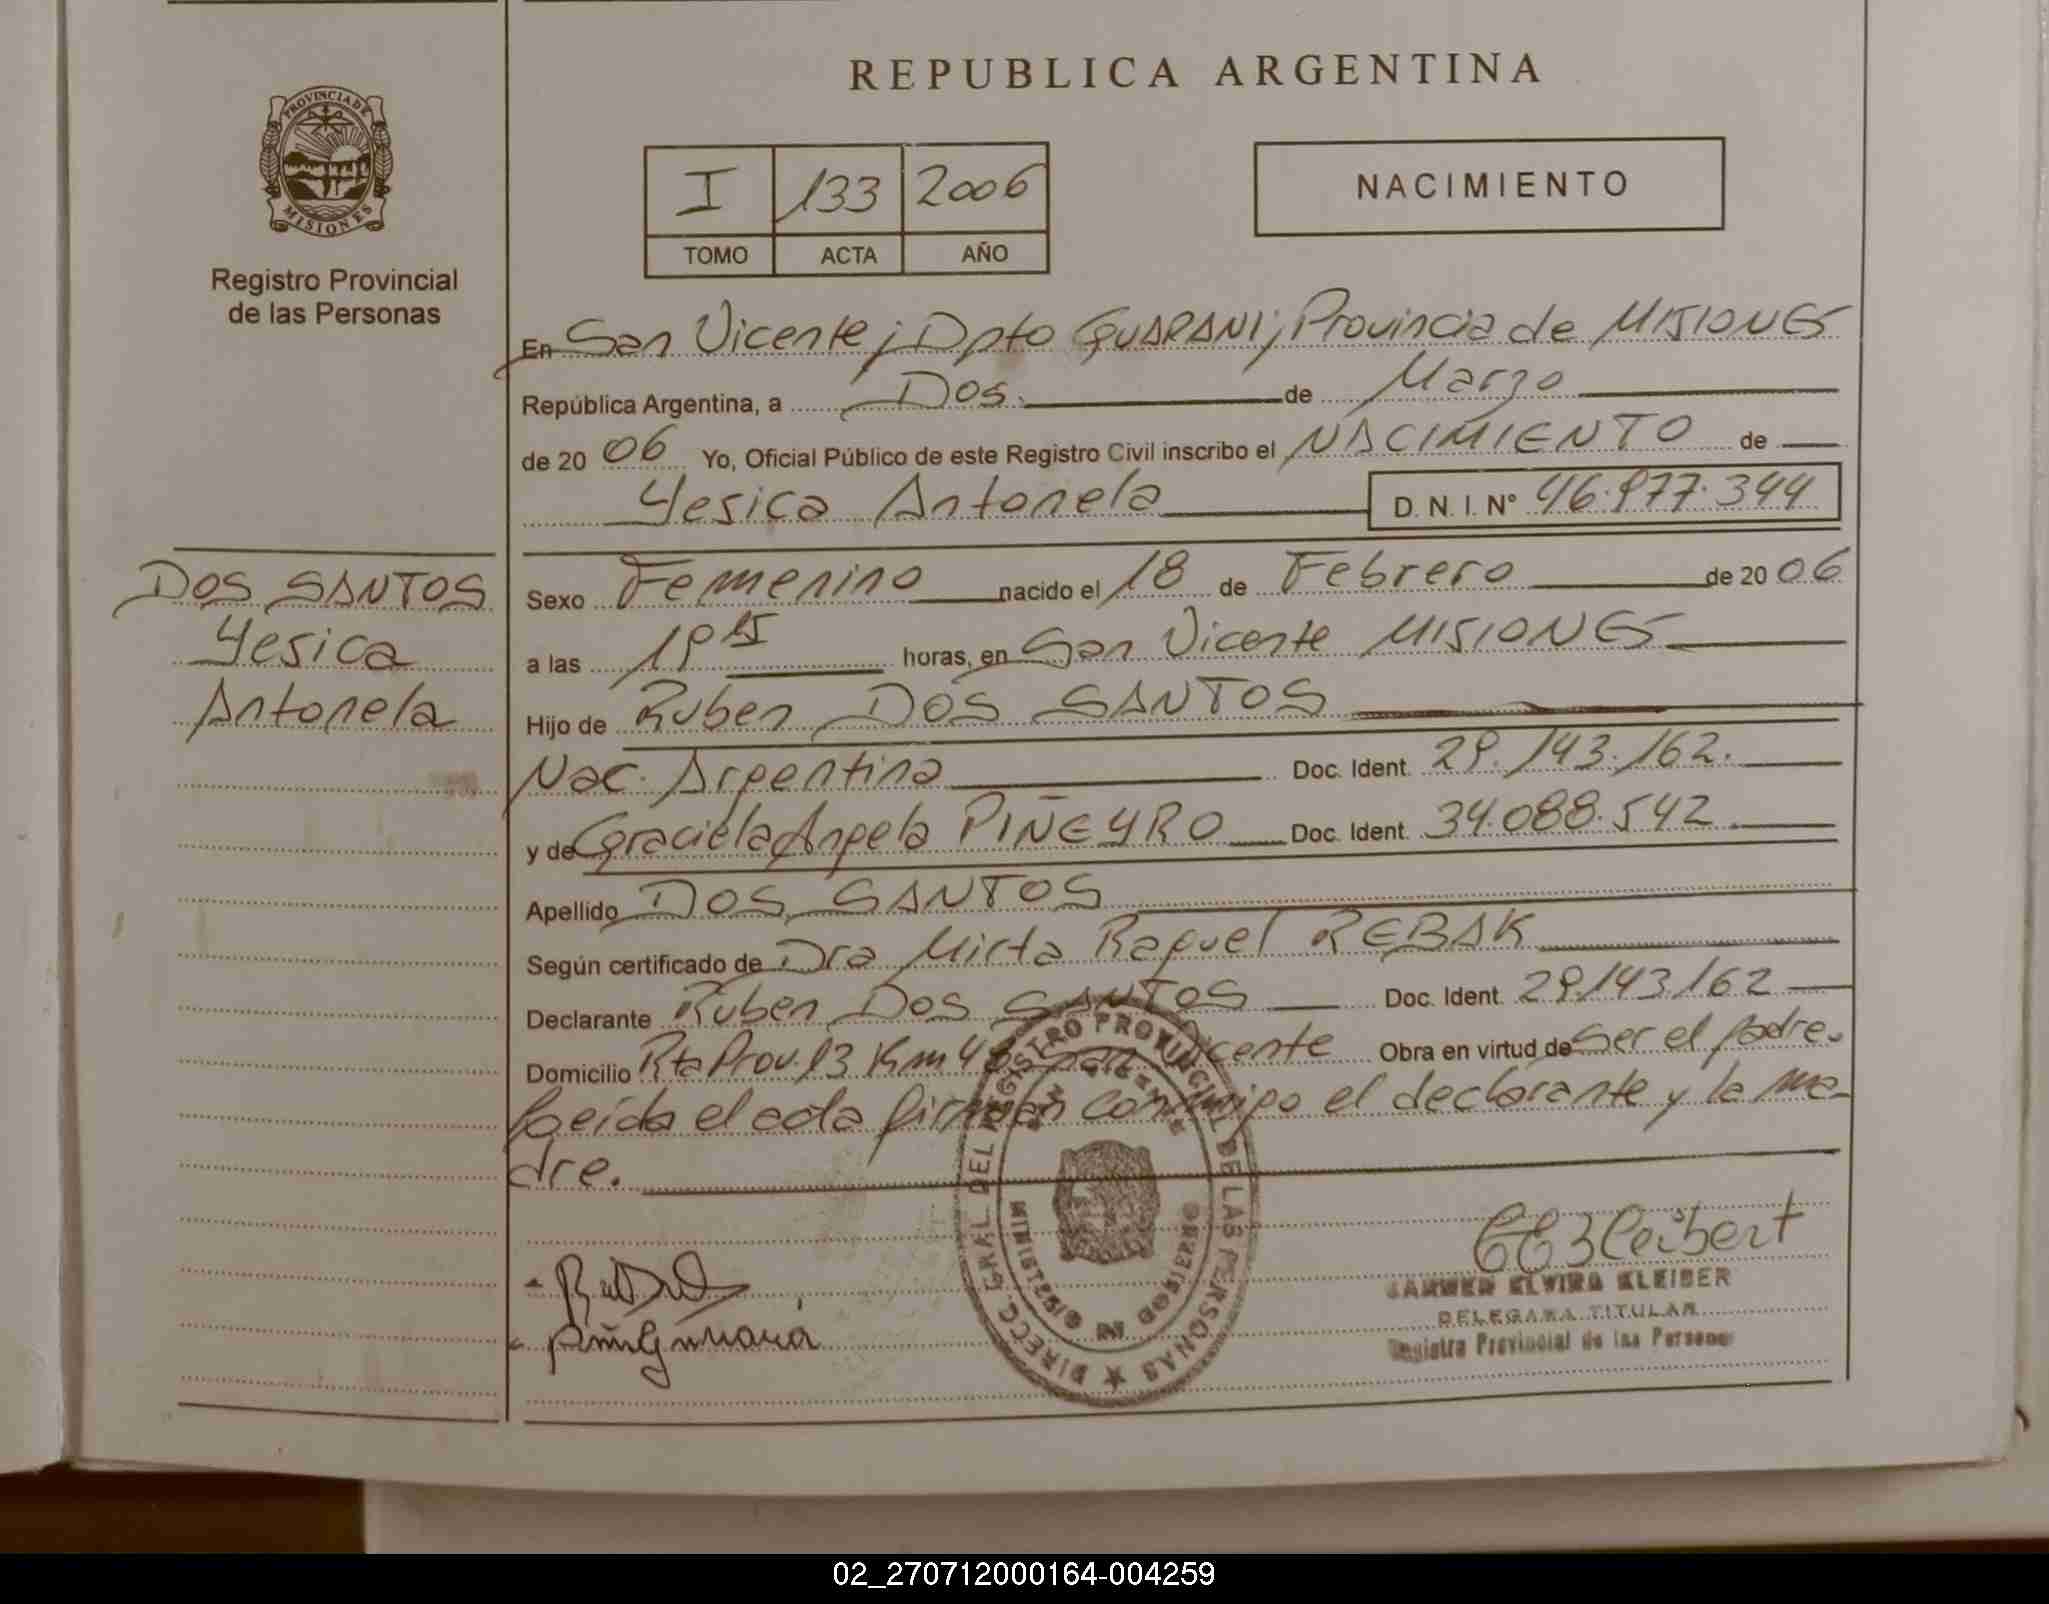 REPUBLICA ARGENTINA
PROVINCIA DE
MISIONES
Registro Provincial
de las Personas
I 133 2006
TOMO ACTA AÑO
NACIMIENTO
En San Vicente; Dpto GUARANI; Provincia de MISIONES
República Argentina, a Dos. de Marzo
de 2006 Yo, Oficial Público de este Registro Civil inscribo el NACIMIENTO de
Yesica Antonela D. N. I. N° 46.977.344
DOS SANTOS
Yesica
Antonela
Sexo Femenino nacido el 18 de Febrero de 2006
a las 19 15 horas, en San Vicente MISIONES
Hijo de Ruben DOS SANTOS
Nac. Argentina Doc. Ident. 29.143.162.
y de Graciela Angela PIÑEYRO Doc. Ident. 34.088.542
Apellido DOS SANTOS
Según certificado de Dra Mirta Raquel REBAK
Declarante Ruben DOS SANTOS Doc. Ident. 29.143.162
Domicilio Rta Prov. 13 Km 48 San Vicente Obra en virtud de ser el padre.
Leida el acta firman conmigo el declarante y la ma-
dre.
DIRECC. GRAL. DEL REGISTRO PROVINCIAL DE LAS PERSONAS
SAN VICENTE
MINISTERIO DE GOBIERNO
CARMEN ELVIRA KLEIBER
DELEGADA TITULAR
Registro Provincial de las Personas
02_270712000164-004259